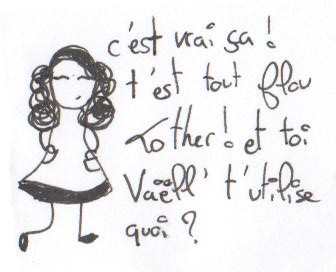 c'est vrai ça !
t'est tout flou
Lother ! et toi
Vaëll' t'utilise
quoi ?